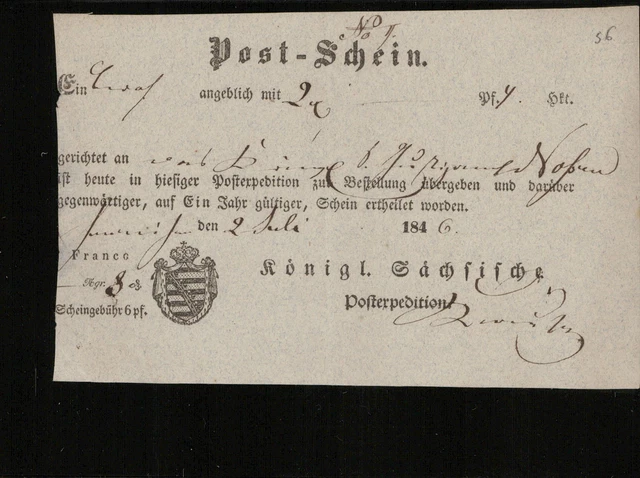 56
No
Post-Schein.
Ein angeblich mit 2 Pf. 4 Hkt.
gerichtet an das König. S. Justizamt Nossen
ist heute in hiesiger Postexpedition zur Bestellung übergeben und darüber
gegenwärtiger, auf Ein Jahr gültiger, Schein ertheilet worden.
den 2 Juli 1846.
Franco
Ngr. 8
Scheingebühr 6 pf.
Königl. Sächsische
Postexpedition